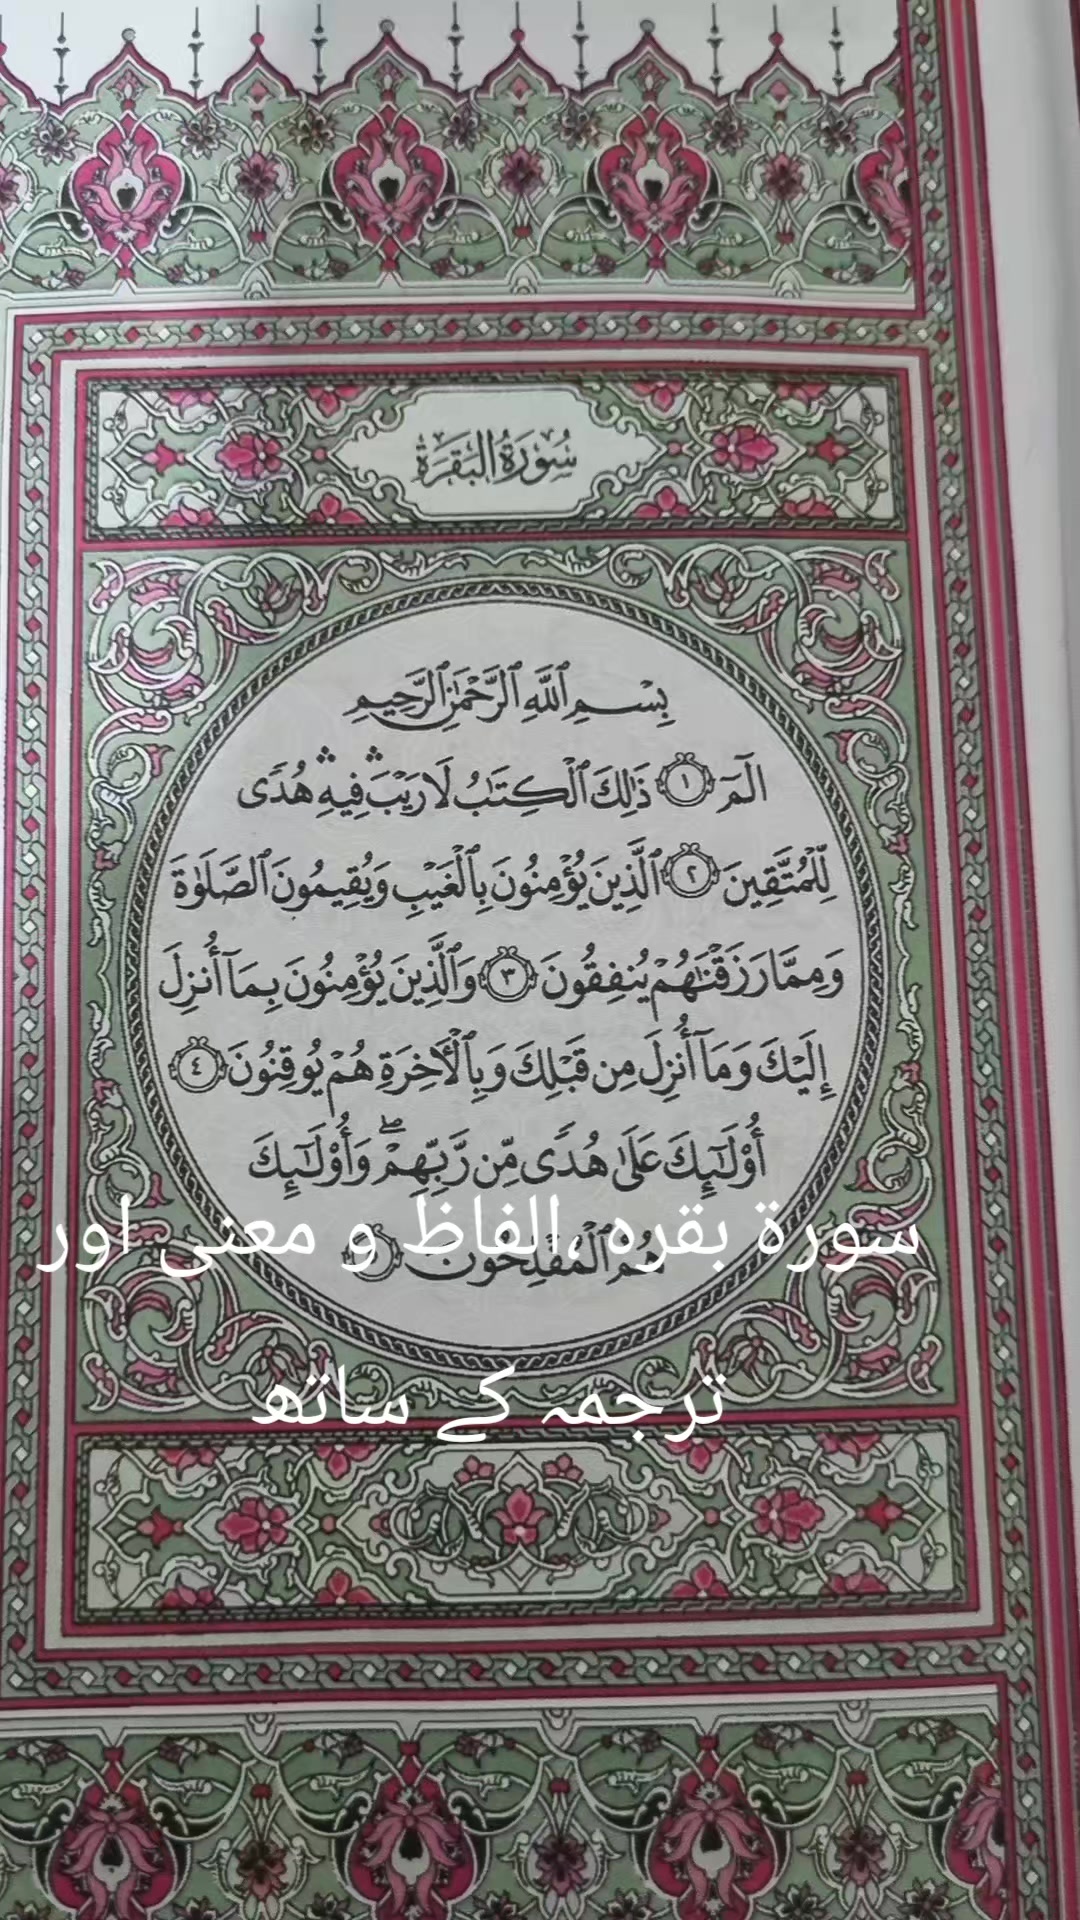 سُورَةُ البَقَرَةِ
بِسْمِ ٱللَّهِ ٱلرَّحْمَٰنِ ٱلرَّحِيمِ
الٓمٓ ١ ذَٰلِكَ ٱلْكِتَٰبُ لَا رَيْبَ ۛ فِيهِ ۛ هُدًى
لِّلْمُتَّقِينَ ٢ ٱلَّذِينَ يُؤْمِنُونَ بِٱلْغَيْبِ وَيُقِيمُونَ ٱلصَّلَوٰةَ
وَمِمَّا رَزَقْنَٰهُمْ يُنفِقُونَ ٣ وَٱلَّذِينَ يُؤْمِنُونَ بِمَآ أُنزِلَ
إِلَيْكَ وَمَآ أُنزِلَ مِن قَبْلِكَ وَبِٱلْأَخِرَةِ هُمْ يُوقِنُونَ ٤
أُو۟لَٰٓئِكَ عَلَىٰ هُدًى مِّن رَّبِّهِمْ ۖ وَأُو۟لَٰٓئِكَ
هُمُ ٱلْمُفْلِحُونَ
سورۃ بقرہ ،الفاظ و معنی اور
ترجمہ کے ساتھ